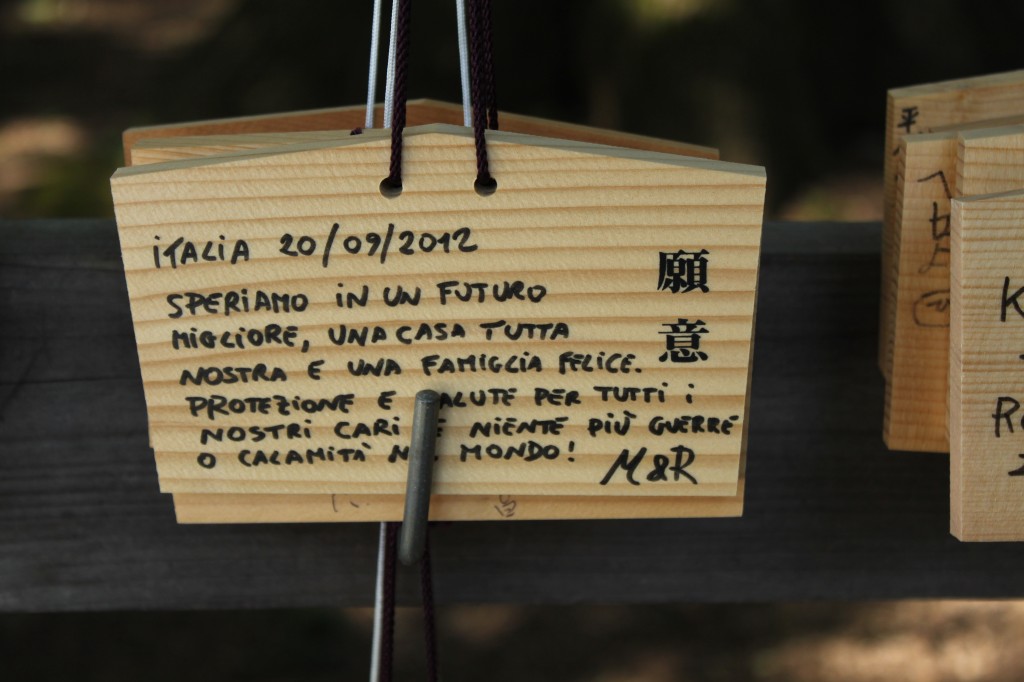 iTALiA 20/09/2012
SPERiAMO iN UN FUTURO
MiGLiORE, UNA CASA TUTTA
NOSTRA E UNA FAMiGLiA FELiCE.
PROTEZiONE E ALUTE PER TUTTi i
NOSTRi CARi E NiENTE PiÙ GUERRE
O CALAMiTÀ MONDO!
M&R
願意
平
K